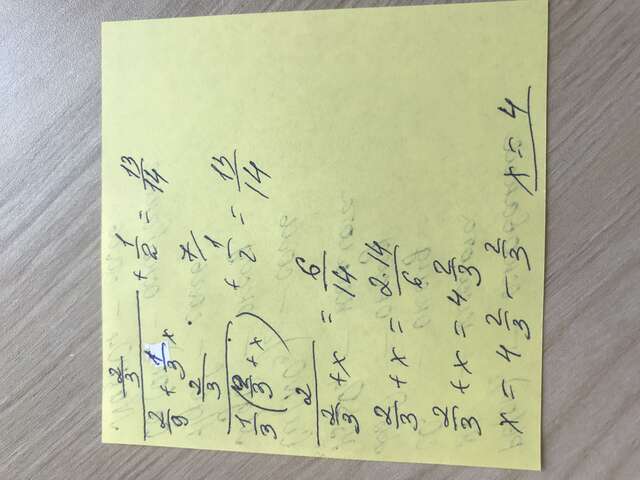 (2/3)/(2/9 + 1/3 x) + 1/2 = 13/14
7
(2/3)/(1/3(2/3 + x)) + 1/2 = 13/14
2/(2/3 + x) = 6/14
2/3 + x = 2·14/6
2/3 + x = 4 2/3
x = 4 2/3 - 2/3 x = 4